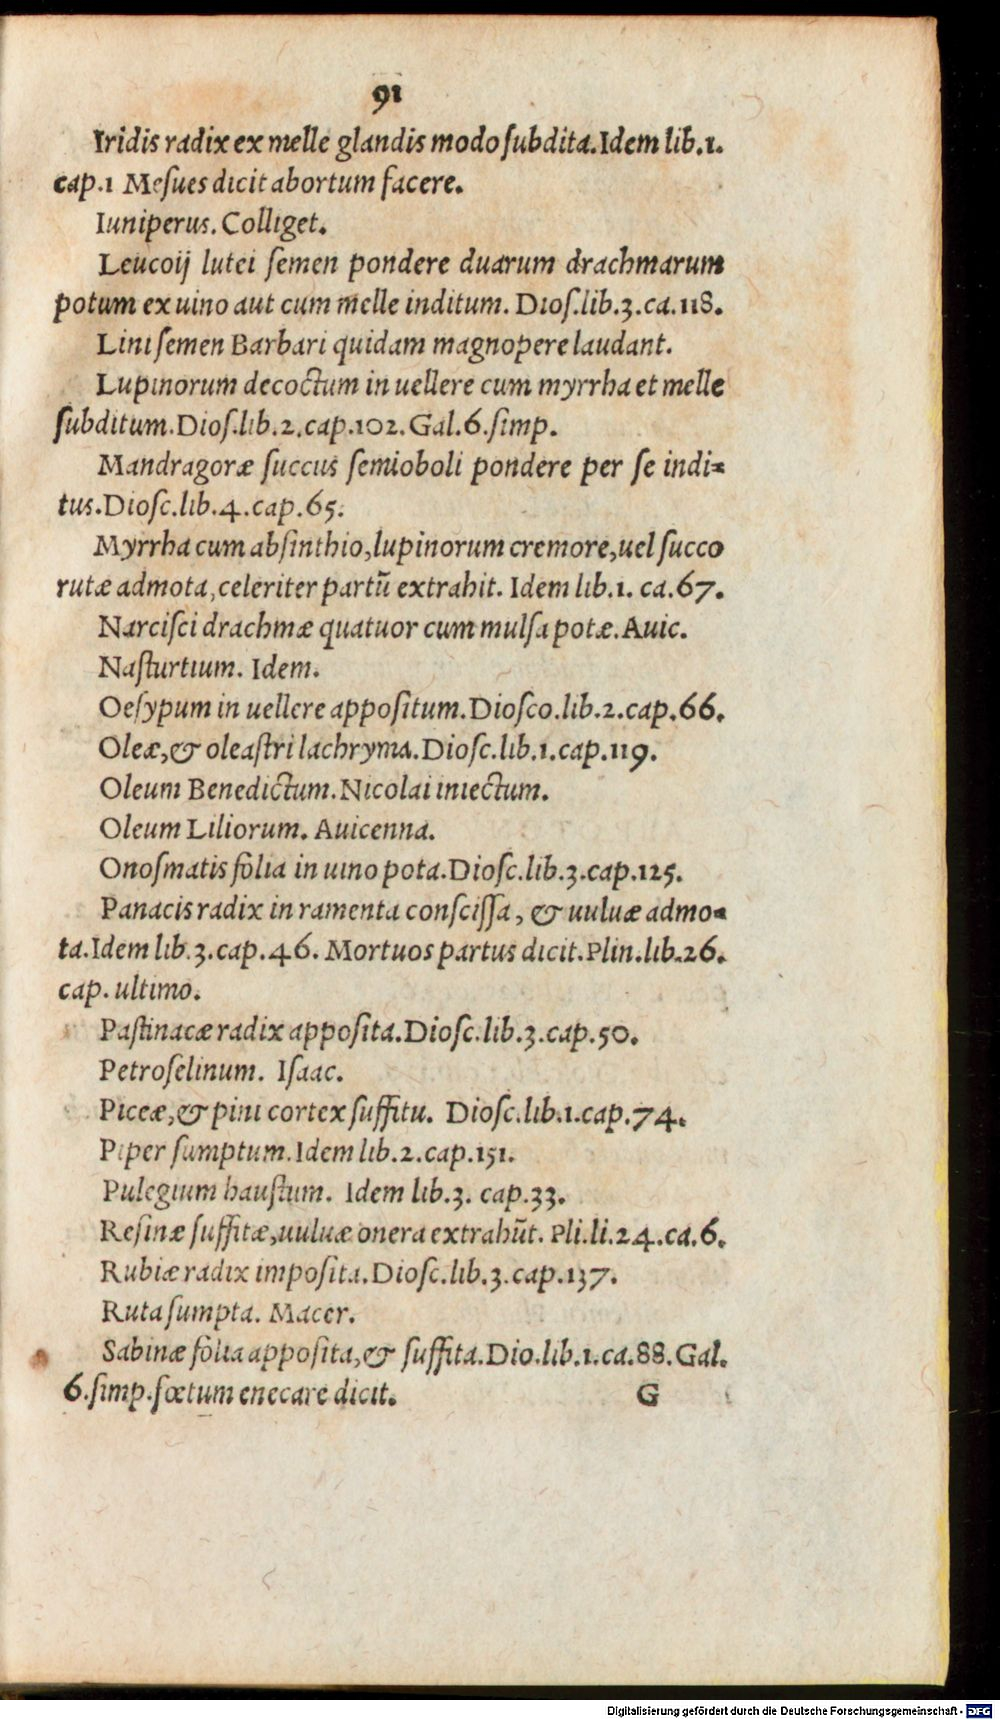 91
Iridis radix ex melle glandis modo ſubdita. Idem lib.1.
cap.1 Meſues dicit abortum facere.
Iuniperus. Colliget.
Leucoij lutei ſemen pondere duarum drachmarum
potum ex uino aut cum melle inditum. Dioſ.lib.3.ca.118.
Lini ſemen Barbari quidam magnopere laudant.
Lupinorum decoctum in uellere cum myrrha et melle
ſubditum. Dioſ.lib.2.cap.102. Gal.6.ſimp.
Mandragoræ ſuccus ſemioboli pondere per ſe indi-
tus. Dioſc.lib.4.cap.65.
Myrrha cum abſinthio, lupinorum cremore, uel ſucco
rutæ admota, celeriter partũ extrahit. Idem lib.1. ca.67.
Narciſci drachmæ quatuor cum mulſa potæ. Auic.
Naſturtium. Idem.
Oeſypum in uellere appoſitum. Dioſco.lib.2.cap.66.
Oleæ, & oleaſtri lachryma. Dioſc.lib.1.cap.119.
Oleum Benedictum. Nicolai iniectum.
Oleum Liliorum. Auicenna.
Onoſmatis folia in uino pota. Dioſc.lib.3.cap.125.
Panacis radix in ramenta conſciſſa, & uuluæ admo-
ta. Idem lib.3.cap.46. Mortuos partus dicit. Plin.lib.26.
cap. ultimo.
Paſtinacæ radix appoſita. Dioſc.lib.3.cap.50.
Petroſelinum. Iſaac.
Piceæ, & pini cortex ſuffitu. Dioſc.lib.1.cap.74.
Piper ſumptum. Idem lib.2.cap.151.
Pulegium hauſtum. Idem lib.3. cap.33.
Reſinæ ſuffitæ, uuluæ onera extrahũt. Pli.li.24.ca.6.
Rubiæ radix impoſita. Dioſc.lib.3.cap.137.
Ruta ſumpta. Macer.
Sabinæ folia appoſita, & ſuffita. Dio.lib.1.ca.88. Gal.
6.ſimp. fœtum enecare dicit. G
Digitalisierung gefördert durch die Deutsche Forschungsgemeinschaft - DFG